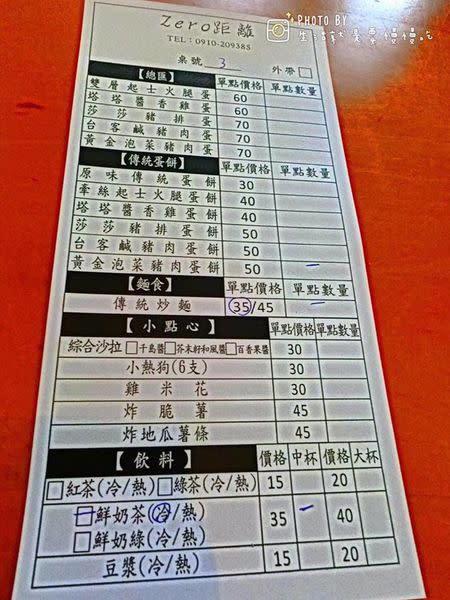 PHOTO BY
Zero距離
TEL：0910-209385
桌號 3 外帶□
【總匯】 單點價格 單點數量
雙層起士火腿蛋 60
塔塔醬香雞蛋 60
莎莎豬排蛋 70
台客鹹豬肉蛋 70
黃金泡菜豬肉蛋 70
【傳統蛋餅】 單點價格 單點數量
原味傳統蛋餅 30
牽絲起士火腿蛋餅 40
塔塔醬香雞蛋餅 40
莎莎豬排蛋餅 50
台客鹹豬肉蛋餅 50
黃金泡菜豬肉蛋餅 50 一
【麵食】 單點價格 單點數量
傳統炒麵 35/45 一
【小點心】 單點價格 單點數量
綜合沙拉 □千島醬□芥末籽和風醬□百香果醬 30
小熱狗(6支) 30
雞米花 30
炸脆薯 45
炸地瓜薯條 45
【飲料】 價格 中杯 價格 大杯
□紅茶(冷/熱) □綠茶(冷/熱) 15 20
□鮮奶茶(冷/熱) 35 一 40
□鮮奶綠(冷/熱)
豆漿(冷/熱) 15 20